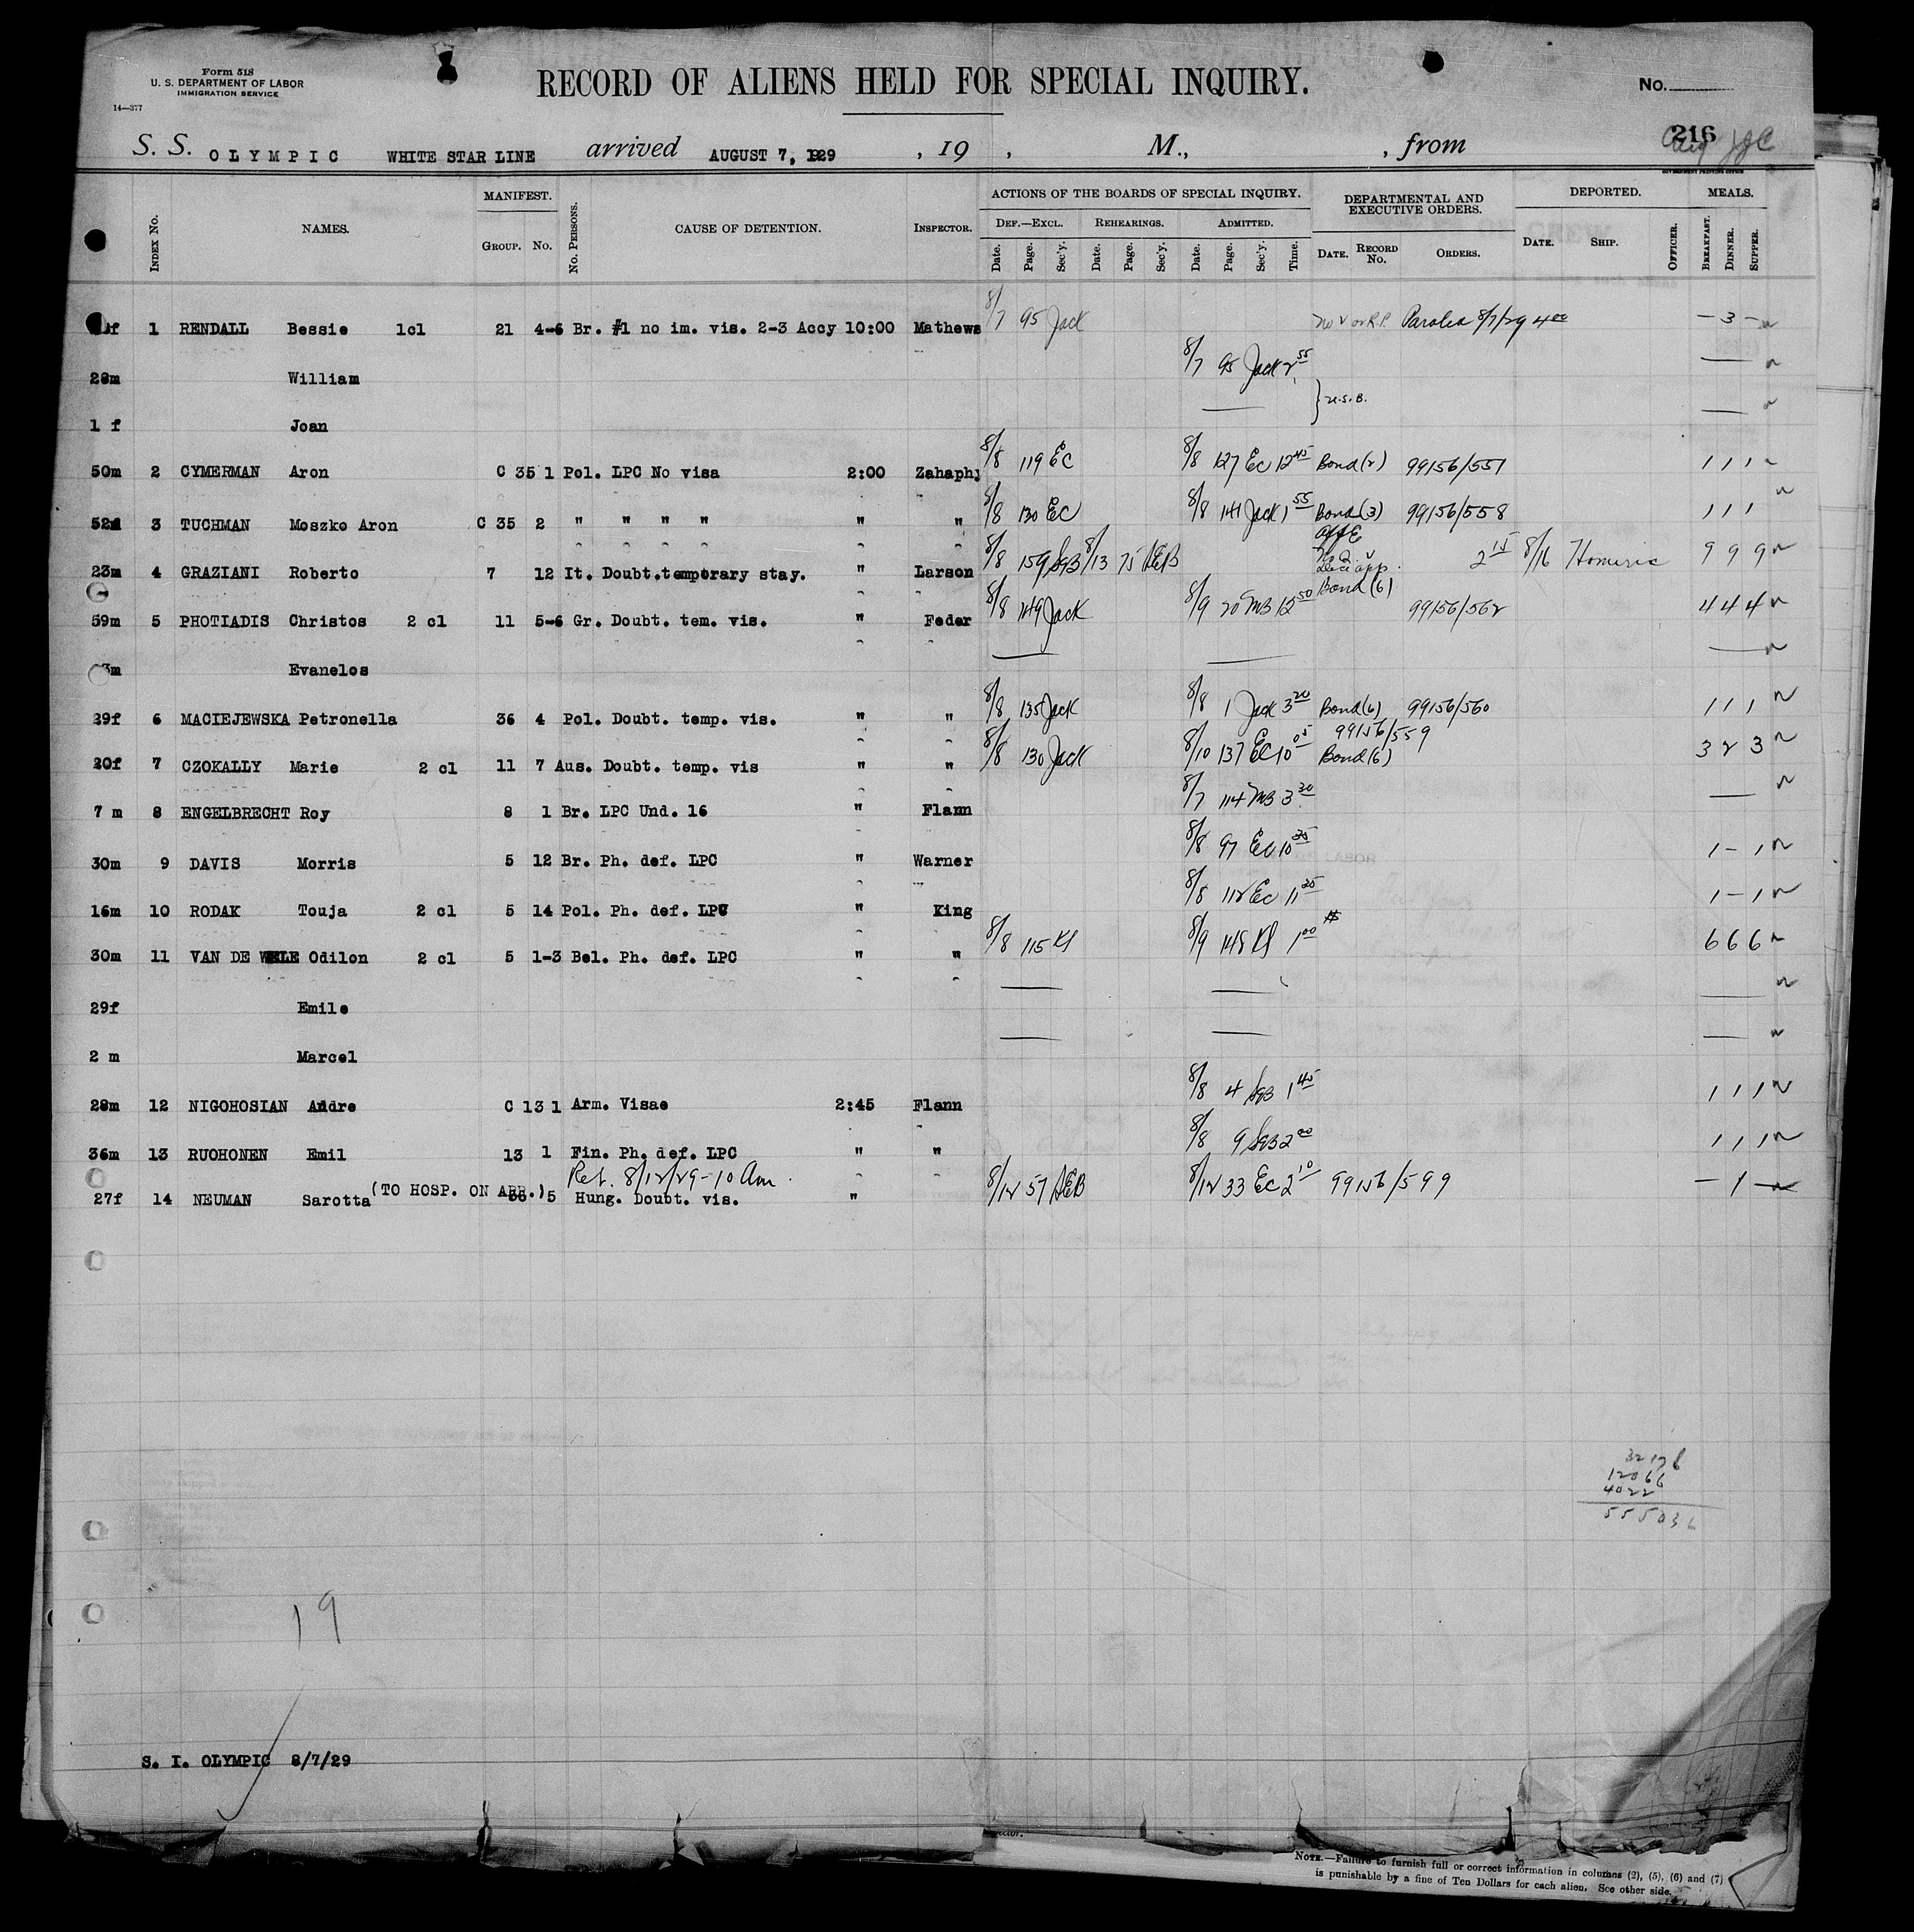 Form 518
U. S. DEPARTMENT OF LABOR
IMMIGRATION SERVICE
14—377
RECORD OF ALIENS HELD FOR SPECIAL INQUIRY.
No.
216
S. S. OLYMPIC WHITE STAR LINE arrived AUGUST 7, 1929 , 19 , M., , from
GOVERNMENT PRINTING OFFICE
MANIFEST. ACTIONS OF THE BOARDS OF SPECIAL INQUIRY. DEPARTMENTAL AND EXECUTIVE ORDERS. DEPORTED. MEALS.
INDEX NO. NAMES. GROUP. NO. No. PERSONS. CAUSE OF DETENTION. INSPECTOR. DEF.—EXCL. REHEARINGS. ADMITTED.
Date. Page. Sec'y. Date. Page. Sec'y. Date. Page. Sec'y. Time. DATE. RECORD No. ORDERS. DATE. SHIP. OFFICER. BREAKFAST. DINNER. SUPPER.
f 1 RENDALL Bessie 1cl 21 4-6 Br. #1 no im. vis. 2-3 Accy 10:00 Mathews 8/7 95 Jack no v or R.P. Paroled 8/7/29 4 00 — 3 —
28m William 8/7 95 Jack 2 55
1 f Joan } U.S.B.
50m 2 CYMERMAN Aron C 35 1 Pol. LPC No visa 2:00 Zahaphy 8/8 119 EC 8/8 127 EC 12 45 Bond (2) 99156/551 1 1 1
52m 3 TUCHMAN Moszko Aron C 35 2 " " " " " " 8/8 130 EC 8/8 141 Jack 1 55 Bond (3) 99156/558 1 1 1
23m 4 GRAZIANI Roberto 7 12 It. Doubt.temporary stay. " Larson 8/8 159 SGB 8/13 75 AEB 2 15 8/16 Homeric 9 9 9
59m 5 PHOTIADIS Christos 2 cl 11 5-6 Gr. Doubt. tem. vis. " Feder 8/8 149 Jack 8/9 20 MB 12 50 Bond (6) 99156/562 4 4 4
3m Evanelos
29f 6 MACIEJEWSKA Petronella 36 4 Pol. Doubt. temp. vis. " " 8/8 135 Jack 8/8 1 Jack 3 20 Bond (6) 99156/560 1 1 1
20f 7 CZOKALLY Marie 2 cl 11 7 Aus. Doubt. temp. vis " " 8/8 130 Jack 8/10 137 EC 10 05 Bond (6) 99156/559 3 2 3
7 m 8 ENGELBRECHT Roy 8 1 Br. LPC Und. 16 " Flann 8/7 114 MB 3 30
30m 9 DAVIS Morris 5 12 Br. Ph. def. LPC " Warner 8/8 97 EC 10 1 — 1
16m 10 RODAK Touja 2 cl 5 14 Pol. Ph. def. LPC " King 8/8 112 EC 11 25 1 — 1
30m 11 VAN DE WELE Odilon 2 cl 5 1-3 Bel. Ph. def. LPC " " 8/8 115 8/9 148 1 00 6 6 6
29f Emile
2 m Marcel
28m 12 NIGOHOSIAN Andre C 13 1 Arm. Visae 2:45 Flann 8/8 4 SGB 1 45 1 1 1
36m 13 RUOHONEN Emil 13 1 Fin. Ph. def. LPC " " 8/8 9 SGB 2 00 1 1 1
Ret. 8/12/29 - 10 Am.
27f 14 NEUMAN Sarotta (TO HOSP. ON ARR.) 36 5 Hung. Doubt. vis. " 8/12 57 AEB 8/12 33 EC 2 10 99156/599 — 1 —
12066
4022
19
S. I. OLYMPIC 8/7/29
NOTE.—Failure to furnish full or correct information in columns (2), (5), (6) and (7)
is punishable by a fine of Ten Dollars for each alien. See other side.